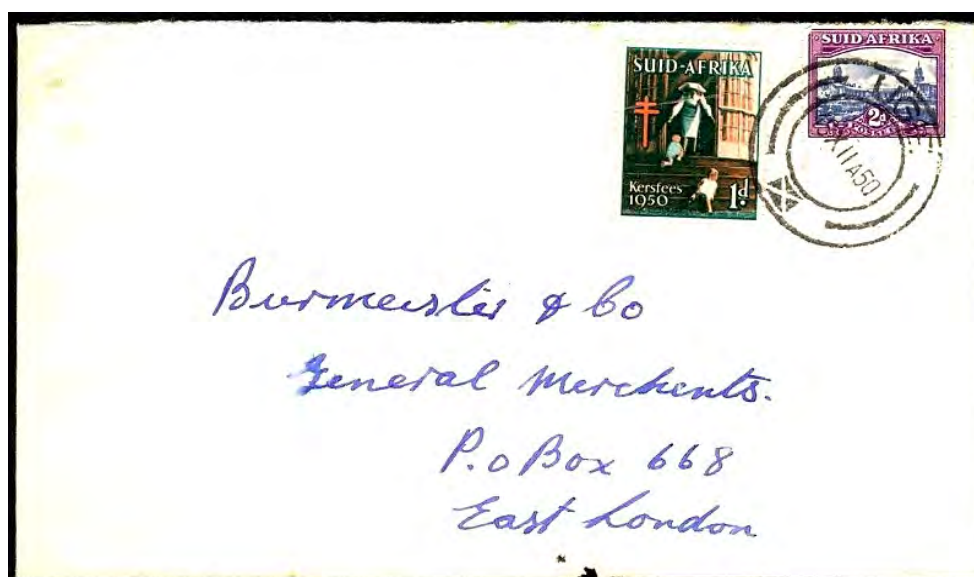 SUID-AFRIKA
Kersfees
1950
1d.
SUID AFRIKA
2d
XII A50
Burmeister & Co
General Merchents.
P.o Box 668
East London